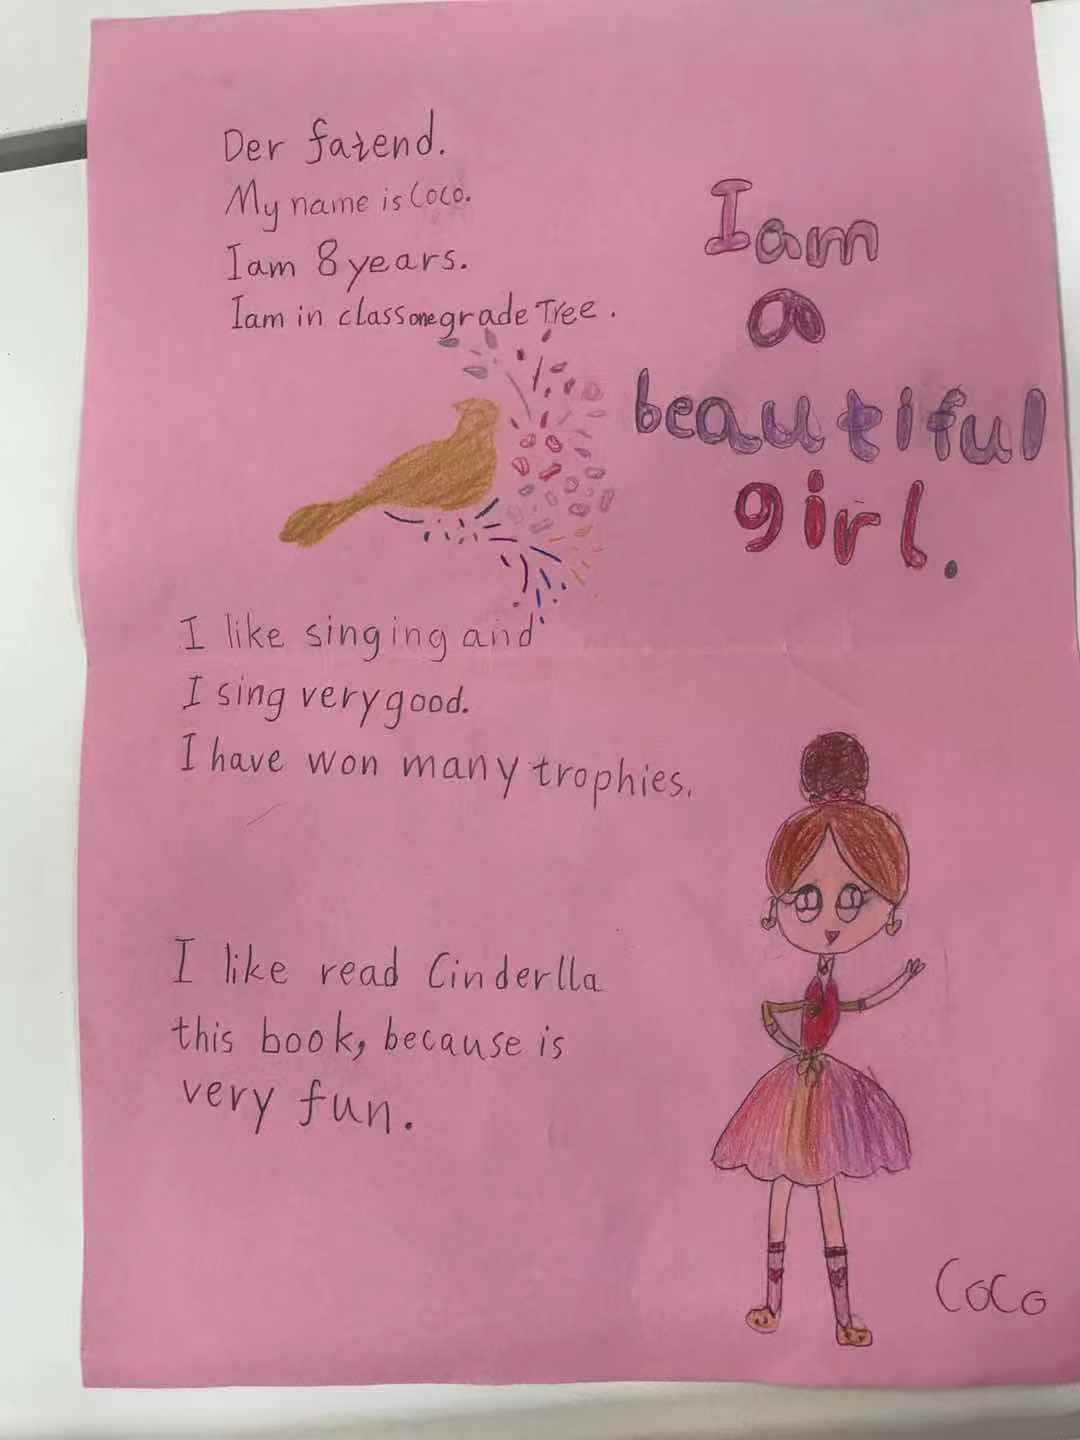 Der fatend.
My name is Coco.
I am 8 years.
I am in class one grade Tree.
I am
a
beautiful
girl.
I like singing and
I sing very good.
I have won many trophies.
I like read Cinderlla
this book, because is
very fun.
CoCo